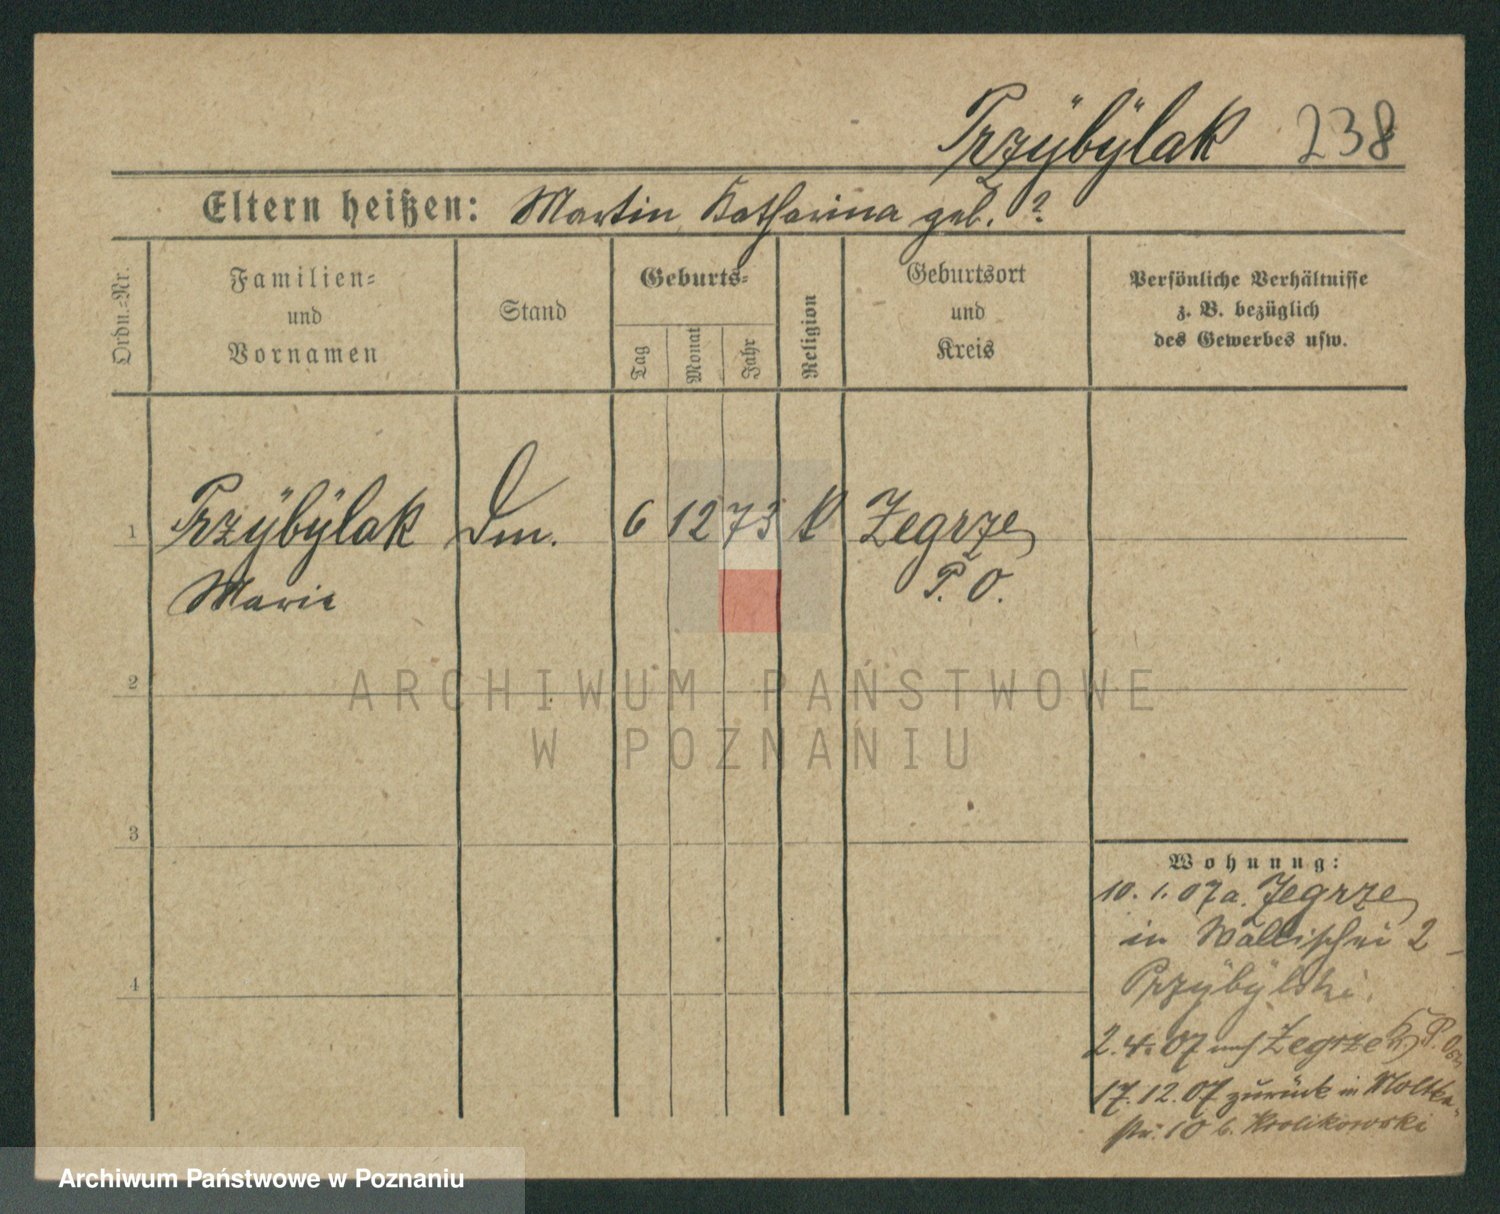 Przÿbÿlak 238
Eltern heißen: Martin Katharina geb. ?
Ordn.-Nr.
Familien-
und
Vornamen
Stand
Geburts-
Tag
Monat
Jahr
Religion
Geburtsort
und
Kreis
Persönliche Verhältnisse
z. B. bezüglich
des Gewerbes usw.
1 Przÿbÿlak Dm. 6 12 73 K Zegrze
Marie P. O.
2
3
4
Wohnung:
10. 1. 07 a. Zegrze
in Wallischei 2
Przÿbÿlski.
2. 4. 07 nach Zegrze P. Ost
17. 12. 07 zurück in Moltke-
str. 10 b. Krolikowski
ARCHIWUM PAŃSTWOWE
W POZNANIU
Archiwum Państwowe w Poznaniu